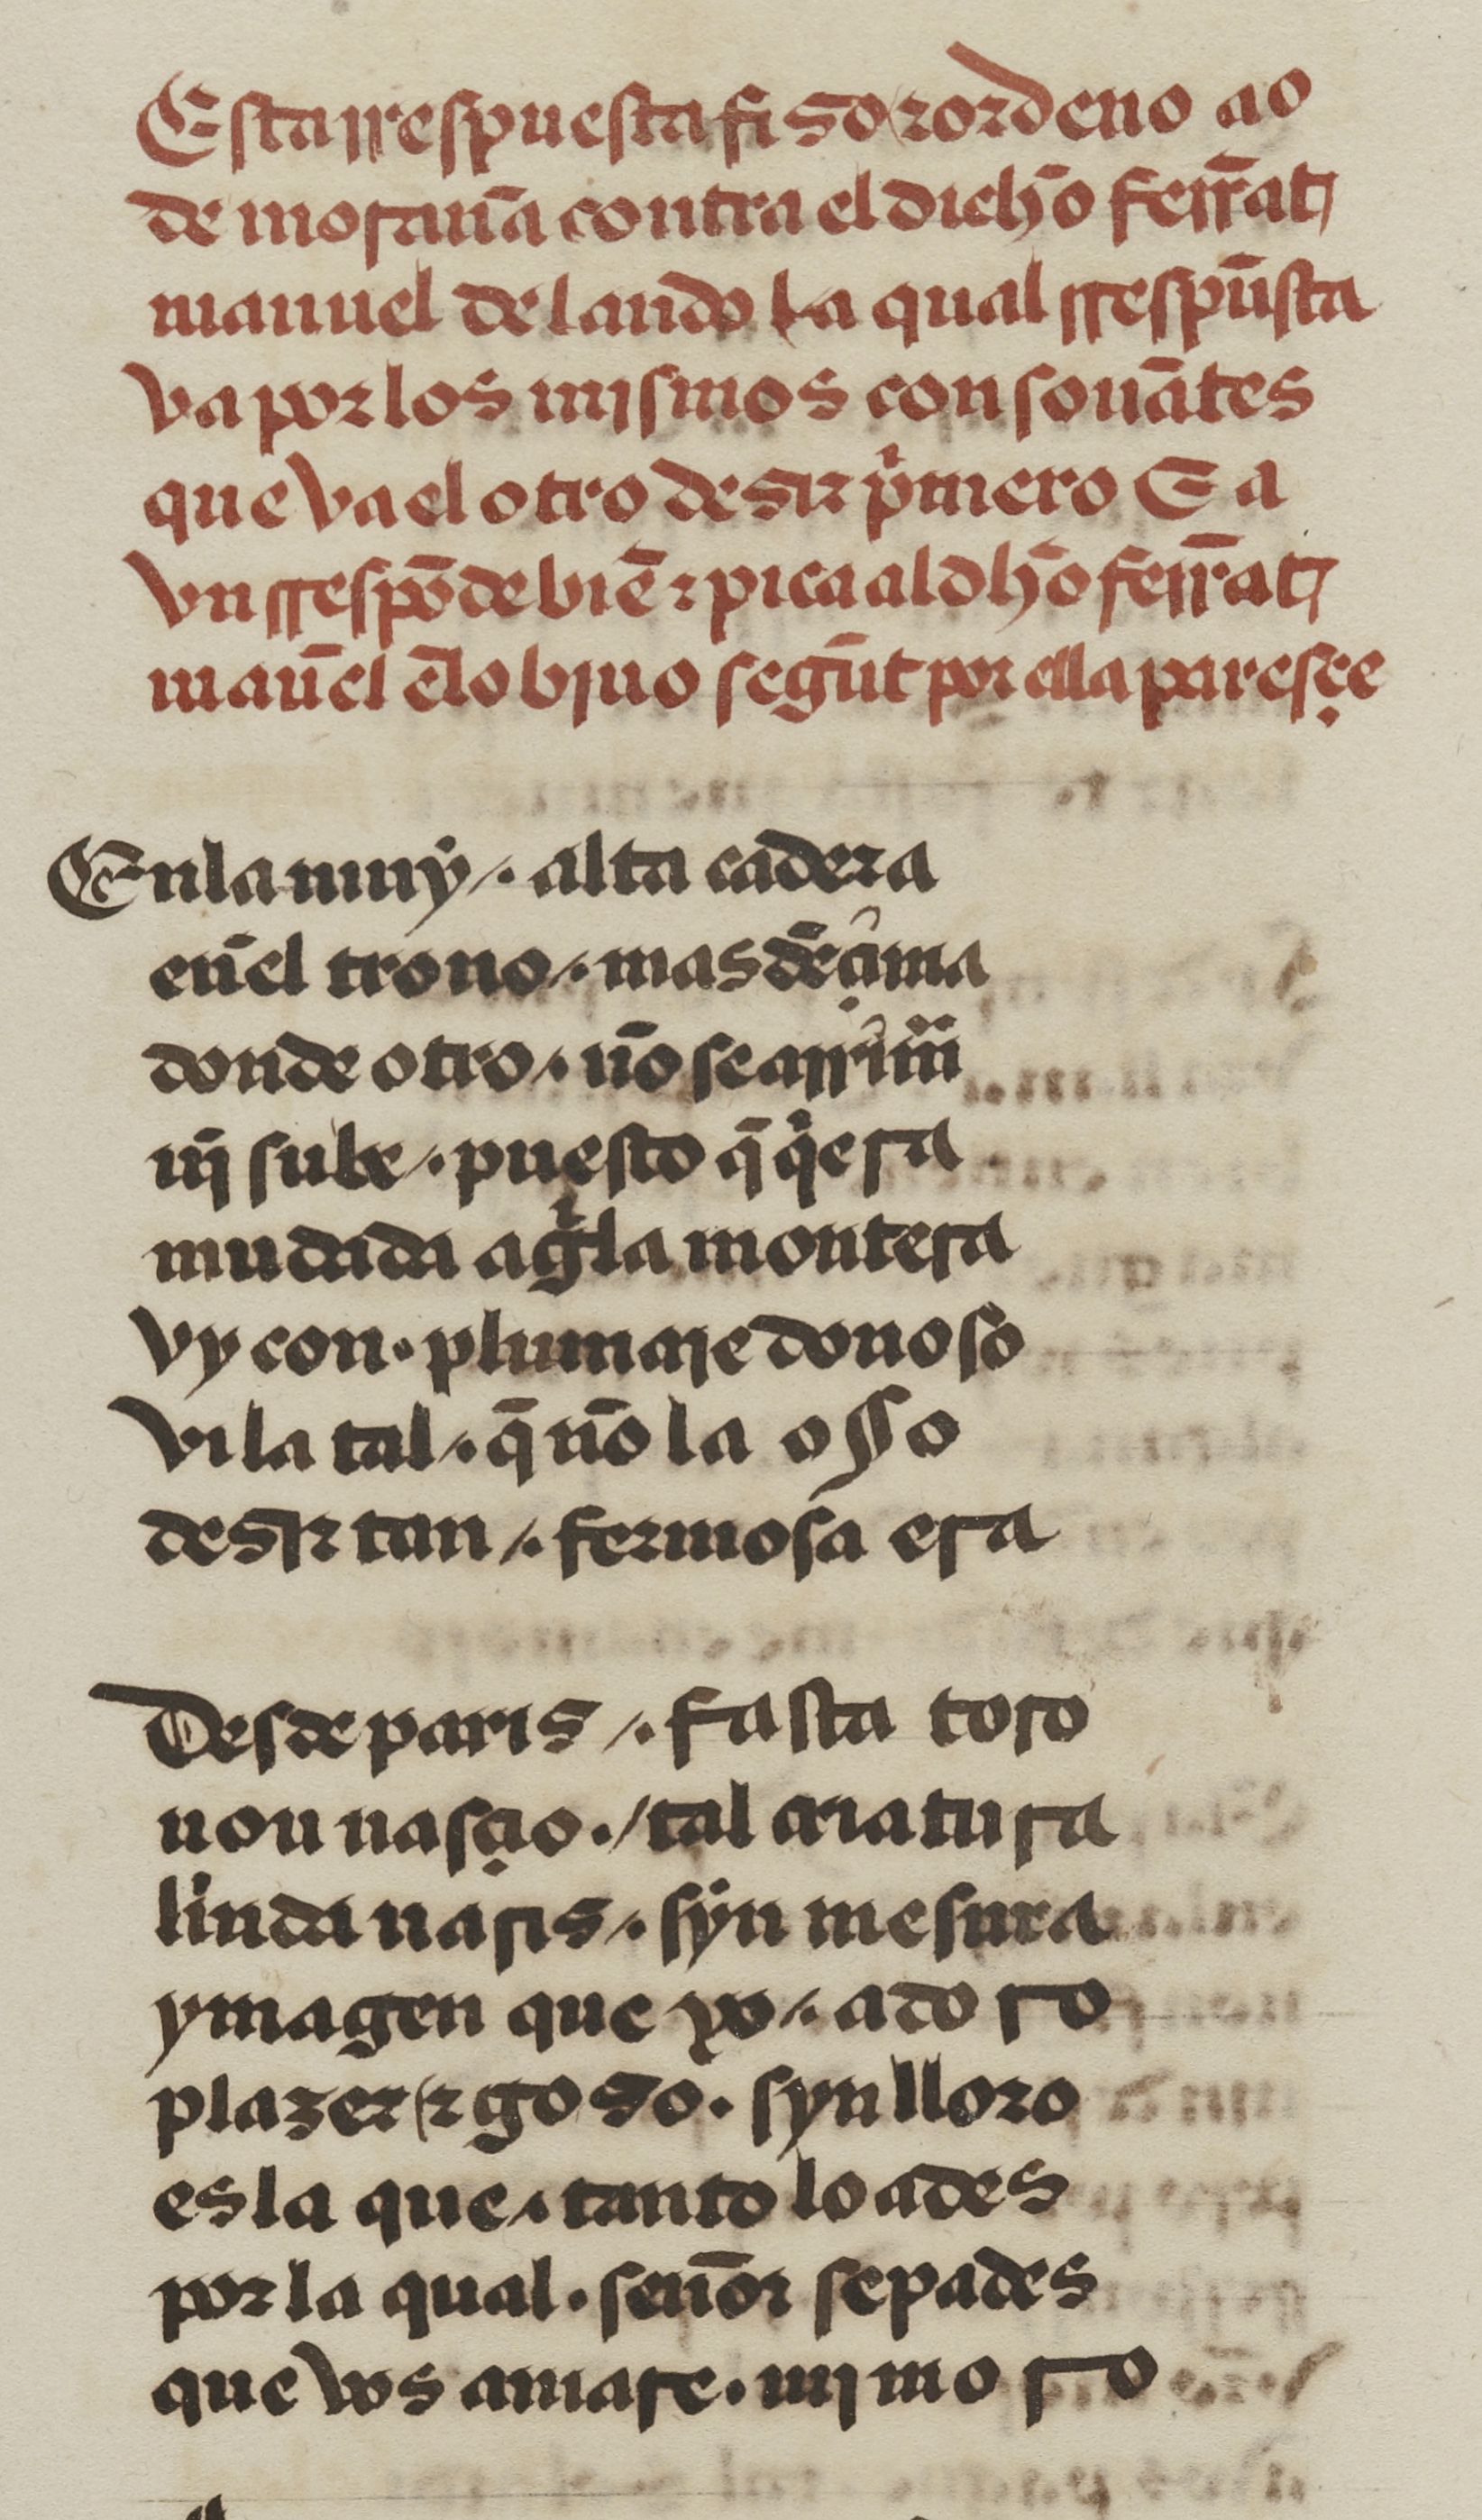 Esta rrespuesta fiso ⁊ ordeno aº
de moranã contra el dich̃o ferrãt
manuel de lando la qual rrespũsta
va por los mjsmos consonãtes
que va el otro desir pⁱmero E a
vn rrespõde biẽ ⁊ pica al dh̃o ferrãt
manũel ẽlo bjuo segũt por ella paresçe
En la muy /· alta cadera
en̄el trono /· mas dẽçima
donde otro /· nõ se arrima
nj̃ sube /· puesto q̃ qⁱera
mudada agⁱla montera
vy con · plumaje donoso
vi la tal /· q̃ nõ la osso
desir tan /· fermosa era
Desde paris /· fasta toro
non nasçio ·/ tal criatura
linda naris /· syn mesura
ymagen que yo /· adoro
plazer ⁊ goso · syn lloro
es la que /· tanto loades
por la qual · sen̄or sepades
que vos amare · mj moro